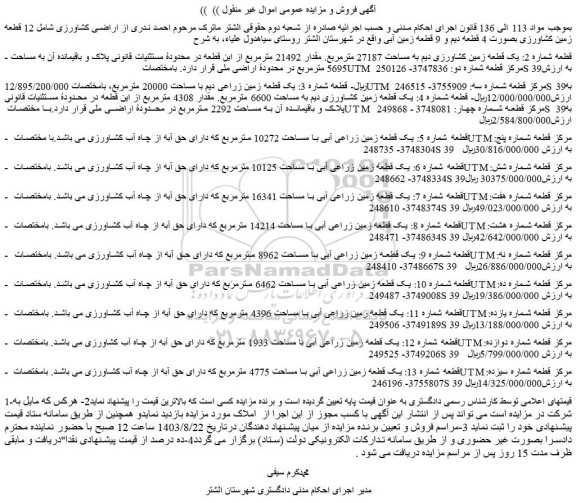 آگهی فروش و مزایده عمومی اموال غیر منقول )) ))
بموجب مواد 113 الی 136 قانون اجرای احکام مدنی و حسب اجرائیه صادره از شعبه دوم حقوقی الشتر ماترک مرحوم احمد ندری از اراضی کشاورزی شامل 12 قطعه
زمین کشاورزی بصورت 4 قطعه دیم و 9 قطعه زمین آبی واقع در شهرستان الشتر روستای سیاهدول علیاء، به شرح
قطعه شماره 2: یک قطعه زمین کشاورزی دیم به مساحت 27187 مترمربع. مقدار 21492 مترمربع از این قطعه در محدودۀ مستثنیات قانونی پلاک و باقیمانده آن به مساحت -
5695UTM مترمربع در محدودۀ اراضی ملی قرار دارد. بامختصات 250126 -3747836 مرکز قطعه شماره دو: 39 Sبه ارزش
12/895/200/000 ریال- قطعه شماره 3: یک قطعه زمین زراعی دیم با مساحت 20000 مترمربع، بامختصات UTM 246515 -3755909 مرکز قطعه شماره سه: 39 Sبه
ارزش 12/000/000/000ریال- قطعه شماره 4: یک قطعه زمین کشاورزی دیم به مساحت 6600 مترمربع. مقدار 4308 مترمربع از این قطعه در محدودۀ مستثنیات قانونی
پلاک و باقیمانده آن به مساحت 2292 مترمربع در محدودۀ اراضی ملی قرار دارد.با مختصات UTM 249868 -3748081 مرکز قطعه شماره چهار: 39 Sبه
ارزش 2/584/800/000ریال
قطعه شماره 5: یک قطعه زمین زراعی آبی با مساحت 10272 مترمربع که دارای حق آبه از چاه آب کشاورزی می باشد.با مختصات -UTMمرکز قطعه شماره پنج:
248735 -3748304S 39 به ارزش 30/816/000/000ریال
قطعه شماره 6: یک قطعه زمین زراعی آبی با مساحت 10125 مترمربع که دارای حق آبه از چاه آب کشاورزی می باشد. بامختصات -UTMمرکز قطعه شماره شش:
248662 -3748334S 39 به ارزش 30375/000/000 ریال
قطعه شماره 7: یک قطعه زمین زراعی آبی با مساحت 16341 مترمربع که دارای حق آبه از چاه آب کشاورزی می باشد. بامختصات -UTMمرکز قطعه شماره هفت:
248610 -3748374S 39 به ارزش 49/023/000/000ریال
قطعه شماره 8: یک قطعه زمین زراعی آبی با مساحت 14214 مترمربع که دارای حق آبه از چاه آب کشاورزی می باشد. بامختصات -UTMمرکز قطعه شماره هشت:
248471 -3748634S 39 به ارزش 42/642/000/000ریال
قطعه شماره 9: یک قطعه زمین زراعی آبی با مساحت 8962 مترمربع که دارای حق آبه از چاه آب کشاورزی می باشد. بامختصات -UTMمرکز قطعه شماره نه:
248410 -3748667S 39 به ارزش 26/886/000/000ریال
قطعه شماره 10: یک قطعه زمین زراعی آبی با مساحت 6462 مترمربع که دارای حق آبه از چاه آب کشاورزی می باشد. بامختصات -UTMمرکز قطعه شماره ده:
249487 -3749008S 39 به ارزش 19/386/000/000ریال
قطعه شماره 11: یک قطعه زمین زراعی آبی با مساحت 4396 مترمربع که دارای حق آبه از چاه آب کشاورزی می باشد. بامختصات -UTMمرکز قطعه شماره یازده:
249506 -3749189S 39 به ارزش 13/188/000/000ریال
قطعه شماره 12: یک قطعه زمین زراعی آبی با مساحت 1933 مترمربع که دارای حق آبه از چاه آب کشاورزی می باشد. بامختصات -UTMمرکز قطعه شماره دوازده:
249525 -3749206S 39 به ارزش 5/799/000/000ریال
قطعه شماره 13: یک قطعه زمین زراعی آبی با مساحت 4775 مترمربع که دارای حق آبه از چاه آب کشاورزی می باشد. بامختصات -UTMمرکز قطعه شماره سیزده:
246196 -3755807S 39 به ارزش 14/325/000/000ریال
قیمتهای اعلامی توسط کارشناس رسمی دادگستری به عنوان قیمت پایه تعیین گردیده است و برنده مزایده کسی است که بالاترین قیمت را پیشنهاد نماید2- هرکس که مایل به1-
شرکت در مزایده است می تواند پس از انتشار این آگهی با کسب مجوز از این اجرا از املاک مورد مزایده بازدید نمایدو همچنین از طریق سامانه ستاد قیمت
پیشنهادی خود را ثبت نماید 3-مراسم فروش و تعیین برنده مزایده از میان پیشنهاد دهندگان درتاریخ 1403/8/22 ساعت 12 صبح با حضور نماینده محترم
دادسرا بصورت غیر حضوری و از طریق سامانه تدارکات الکترونیکی دولت (ستاد) برگزار می گردد4-ده درصد از قیمت پیشنهادی نقدا"دریافت و مابقی
ظرف مدت 15 روز پس از مراسم مزایده دریافت می شود .
محمدکرم سیفی
مدیر اجرای احکام مدنی دادگستری شهرستان الشتر
ParsNamadData
۰۲۱-۸۸۳۴۹۶۷۰-۵